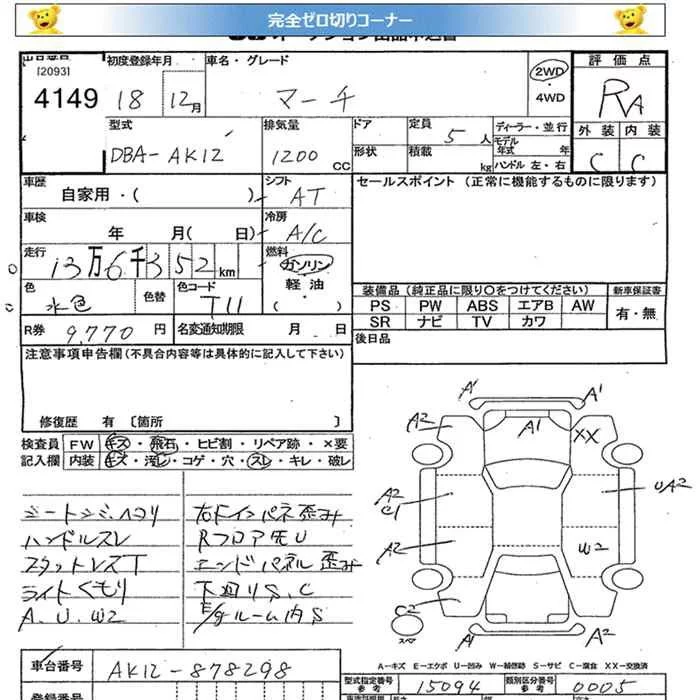 完全ゼロ切りコーナー
[2093]
初度登録年月
車名・グレード
評価点
4149
18
12月
マーチ
2WD
・
4WD
RA
型式
排気量
ドア
定員
5人
ディーラー・並行
外装
内装
DBA-AK12
1200
CC
形状
積載
kg
モデル
年式
年
ハンドル 左・右
C
C
車歴
自家用・(
)
シフト
AT
セールスポイント (正常に機能するものに限ります)
車検
年 月( 日)
冷房
A/C
走行
13万6千352km
燃料
ガソリン
軽油
・( )
色
水色
色替
色コード
T11
装備品 (純正品に限り○をつけてください)
新車保証書
PS
PW
ABS
エアB
AW
有・無
SR
ナビ
TV
カワ
R券
9,770円
名変通知期限
月 日
後日品
注意事項申告欄 (不具合内容等は具体的に記入して下さい)
修復歴 有 [箇所
]
検査員
FW
キズ・飛石・ヒビ割・リペア跡・×要
記入欄
内装
キズ・汚レ・コゲ・穴・スレ・キレ・破レ
シートシミ、ヘコリ
ハンドルスレ
スタットレスT
ライトくもり
A.U.W2
右ドインパネ歪み
Rフロア先U
エンドパネル歪み
下廻りS.C
E/gルーム内S
A1
A1
A2
A1
XX
A2
C1
UA2
A2
W2
C2
スペア
A1
A2
A-キズ E-エクボ U-凹み W-補修跡 S-サビ C-腐食 XX-交換済
車台番号
AK12-878298
型式指定番号
参考
15094
類別区分番号
参考
0005
登録番号